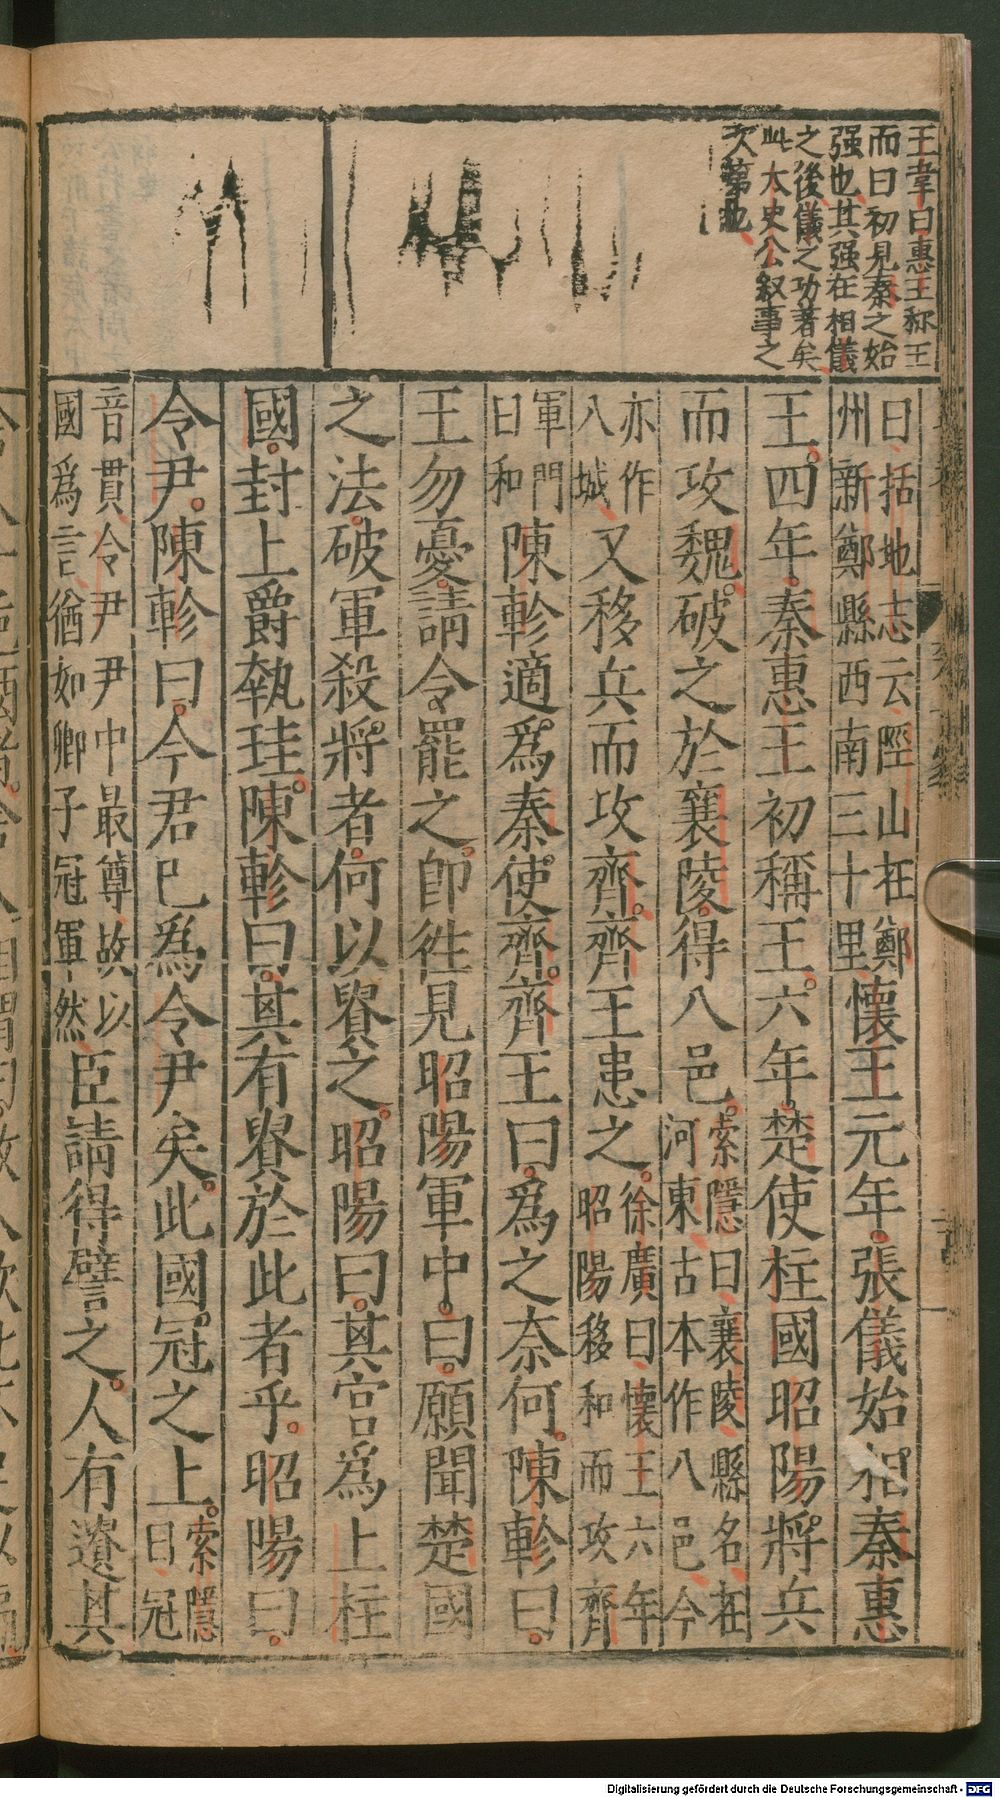 王韋曰惠王称王
而曰初見秦之始
强也其强在相儀
之後儀之功著矣
此太史公叙事之
次第也
曰括地志云陘山在鄭
州新鄭縣西南三十里懷王元年張儀始相秦惠
王四年秦惠王初稱王六年楚使柱國昭陽將兵
而攻魏破之於襄陵得八邑索隱曰襄陵縣名在
河東古本作八邑今
亦作
八城又移兵而攻齊齊王患之徐廣曰懷王六年
昭陽移和而攻齊
軍門
曰和陳軫適爲秦使齊齊王曰爲之奈何陳軫曰
王勿憂請令罷之卽徃見昭陽軍中曰願聞楚國
之法破軍殺將者何以貴之昭陽曰其官爲上柱
國封上爵執珪陳軫曰其有貴於此者乎昭陽曰
令尹陳軫曰今君已爲令尹矣此國冠之上索隱
曰冠
音貫令尹尹中最尊故以
國爲言猶如卿子冠軍然臣請得譬之人有遺其
Digitalisierung gefördert durch die Deutsche Forschungsgemeinschaft - DFG